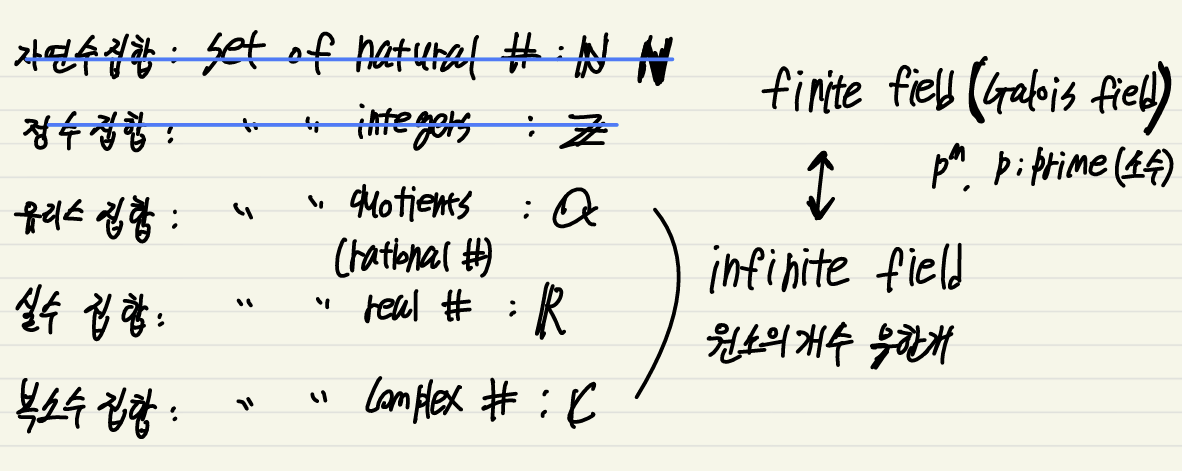 자연수집합 : set of natural # : ℕ ℕ
정수 집합 : " " integers : ℤ
유리수 집합 : " " quotients : Q
(rational #)
실수 집합 : " " real # : ℝ
복소수 집합 : " " complex # : ℂ
finite field (Galois field)
pⁿ. p : prime (소수)
↕
infinite field
원소의 개수 무한개